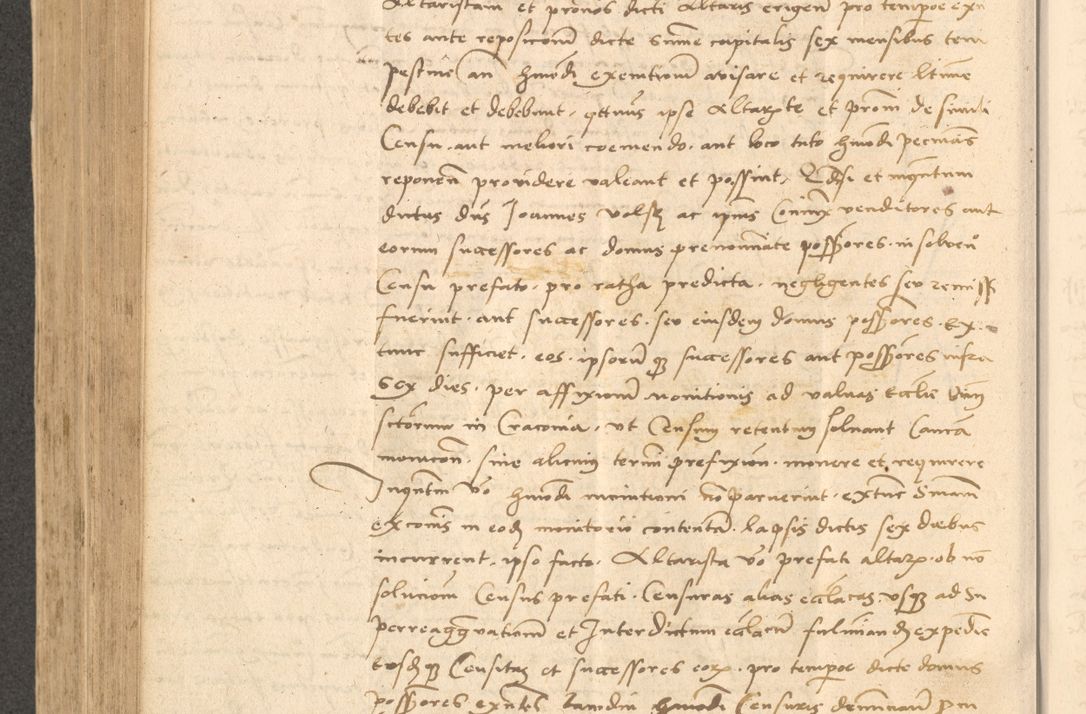 Altaristam et pronos dicti Altaris erigen pro tempore exn
tes ante reposicionem dicte summe capitalis sex mensibus
an hmodi exemtionem avisare et requirere ltime
debebit et debebunt. qtenus ipse Altarista et promi de simili
Censu. aut meliori coemendo. aut loco tuto hmodi pecunias
reponen providere valeant et possint, Qdsi et inqntum
dictus dns Joannes volsky ac ipius Coniunx venditores aut
eorum successores ac domus prenominate possores. in solven
Censu prefato. pro ratha predicta. negligentes seu remissi
fuerint. aut successores. seu eiusdem domus possores. Ex
tunc sufficiet. eos. ipsorumque successores aut possores infra
sex dies. per affixionem monitionis ad valvas Ecclie
sctorum in Cracovia. ut Censum retentum solvant Causa
monicon. sine alicuius termini prefixion. monere et requirere
Inqntum vo hmodi monitioni non paruerint. extunc Smam
excomis in eodem monitorio contentam. lapsis dictis sex diebus
incurrent. ipso facto. Altarista vo prefati altaris. ob non
solucionem Census prefati. Censuras alias ecclicas. usque ad
perreaggravationem et Interdictum ecclicum fulminan expedire
eosdemque Censitas et successores eorum. pro tempore dicte domus
possores exntes tamdiu hmodi Censuris